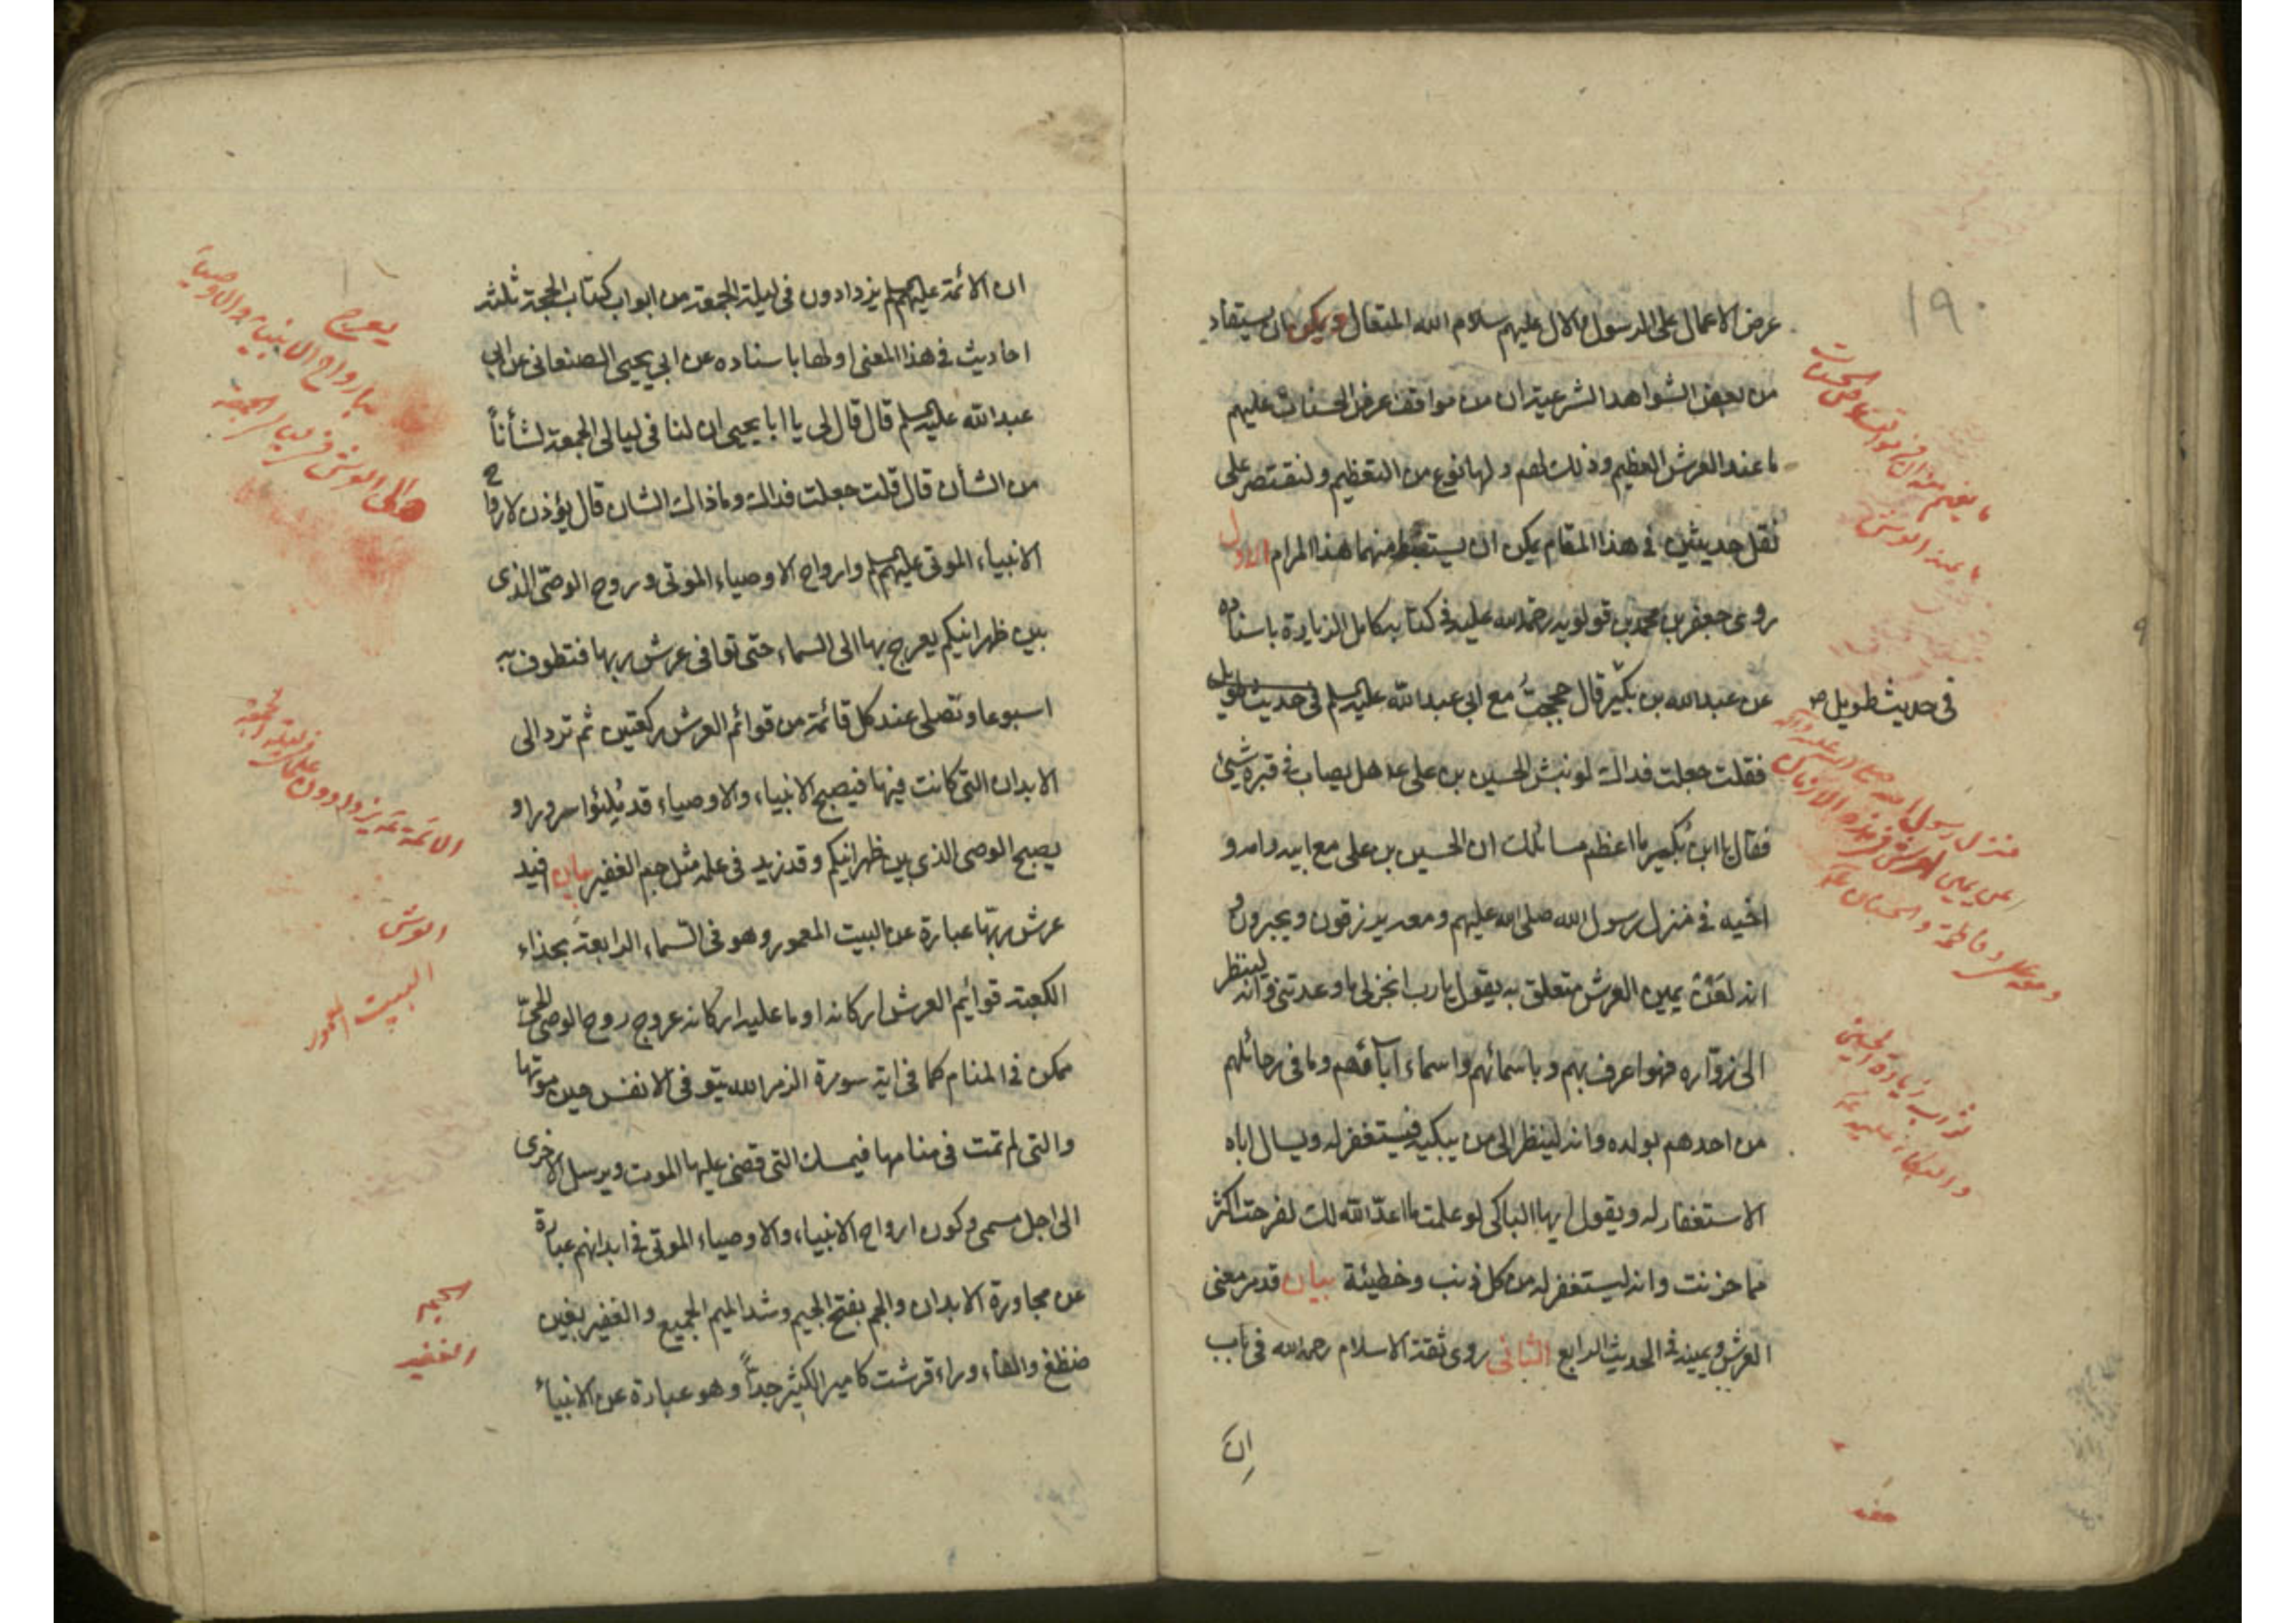 ١٩٠
عرض الاعمال على الرسول والال عليهم سلام الله المتعال ويمكن ان يستفاد
من بعض الشواهد الشرعية ان من مواقف عرض الحسنات عليهم
ما عند العرش العظيم وذلك لهم ولها نوع من التعظيم ولنقتصر على
نقل حديثين في هذا المقام يمكن ان يستنبط منهما هذا المرام الاول
روى جعفر بن محمد بن قولويه رحمة الله عليه في كتابه كامل الزيارة باسناده
عن عبدالله بن بكير قال حججتُ مع ابي عبدالله عليه السلم في حديث طويل
فقلت جعلت فداك لو نبش الحسين بن علي ع هل يصاب في قبره شيئ
فقال يا ابن بكير ما اعظم مسائلك ان الحسين بن علي مع ابيه وامه و
اخيه في منزل رسول الله صلى الله عليهم ومعه يرزقون ويحبرون و
انه لعن يمين العرش متعلق به يقول يارب انجز لي ما وعدتني وانه لينظر
الى زواره فهو اعرف بهم وباسمائهم واسماء آبائهم وما في رحائلهم
من احدهم بولده وانه لينظر الى من يبكيه فيستغفر له ويسال اباه
الاستغفار له ويقول ايها الباكي لو علمت ما اعدّ الله لك لفرحت اكثر
مما حزنت وانه ليستغفر له من كل ذنب وخطيئة بيان قد مر معنى
العرش ويمينه في الحديث الرابع الثاني روى ثقة الاسلام رحمه الله في باب
ان
ما يفهم منه ان في مواقف عرض الحسنات
ما عند العرش
في حديث طويل ص
منزل رسول الله صلى الله عليه وآله
عن يمين العرش في هذه الازمان
ومعه علي وفاطمة والحسنان
ثواب زيارة الحسين
والبكاء عليه
ان الائمة عليهم السلم يزدادون في ليلة الجمعة من ابواب كتاب الحجة ثلثة
احاديث في هذا المعنى اولها باسناده عن ابي يحيى الصنعاني عن ابي
عبدالله عليه السلم قال قال لي يا ابا يحيى ان لنا في ليالي الجمعة لشأناً
من الشأن قال قلت جعلت فداك وما ذاك الشان قال يؤذن لارواح
الانبياء الموتى عليهم السلم وارواح الاوصياء الموتى وروح الوصيّ الذي
بين ظهرانيكم يعرج بها الى السماء حتى توافي عرش ربها فتطوف به
اسبوعا وتصلي عند كل قائمة من قوائم العرش ركعتين ثم ترد الى
الابدان التي كانت فيها فيصبح الانبياء والاوصياء قد مُلِئوا سرورا و
يصبح الوصي الذي بين ظهرانيكم وقد زيد في علمه مثل جم الغفير بيان افيد
عرش ربّها عبارة عن البيت المعمور وهو في السّماء الرابعة بحذاء
الكعبة قوائم العرش اركانه او ما عليه اركانه عروج روح الوصي الحيّ
ممكن في المنام كما في اية سورة الزمر الله يتوفى الانفس حين موتها
والتي لم تمت في منامها فيمسك التي قضى عليها الموت ويرسل الاخرى
الى اجل مسمى وكون ارواح الانبياء والاوصياء الموتى في ابدانهم عبارة
عن مجاورة الابدان والجم بفتح الجيم وشد الميم الجميع والغفير بغين
ضظغ والفاء وراء قرشت كامير الكثير جدّاً وهو عبارة عن الانبياء
يعرج
بارواح الانبياء والاوصياء
الى العرش في ليالي الجمعة
الائمة يزدادون علما في ليلة الجمعة
العرش
البيت المعمور
الجم
الغفير